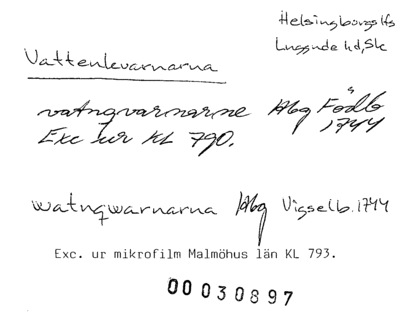 Helsingborgs lfs
Luggude hd, Sk
Vattenkvarnarna
vatnqvarnarne Hbg Födb
1744
Exc ur KL 790.
watnqwarnarna Hbg Vigselb. 1744
Exc. ur mikrofilm Malmöhus län KL 793.
00030897